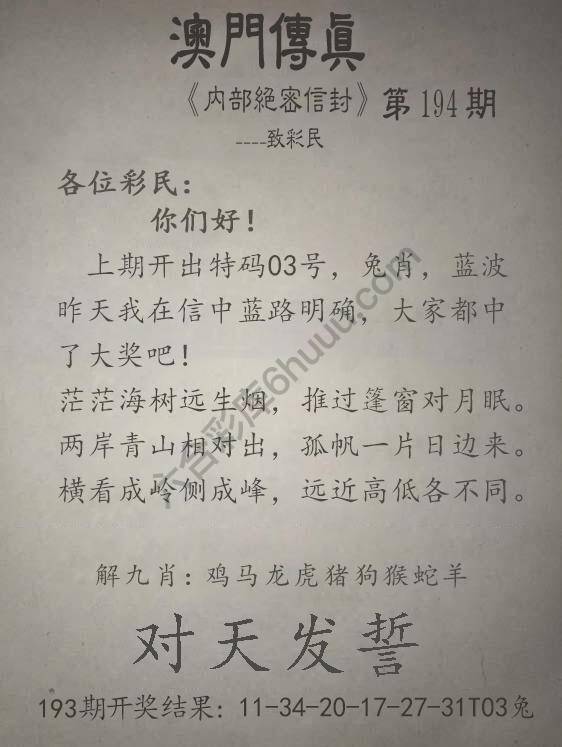 澳門傳眞
《内部絕密信封》第194期
----致彩民
各位彩民：
你们好！
上期开出特码03号，兔肖，蓝波
昨天我在信中蓝路明确，大家都中
了大奖吧！
茫茫海树远生烟，推过篷窗对月眠。
两岸青山相对出，孤帆一片日边来。
横看成岭侧成峰，远近高低各不同。
六合彩库6huuu.com
解九肖：鸡马龙虎猪狗猴蛇羊
对天发誓
193期开奖结果：11-34-20-17-27-31T03兔